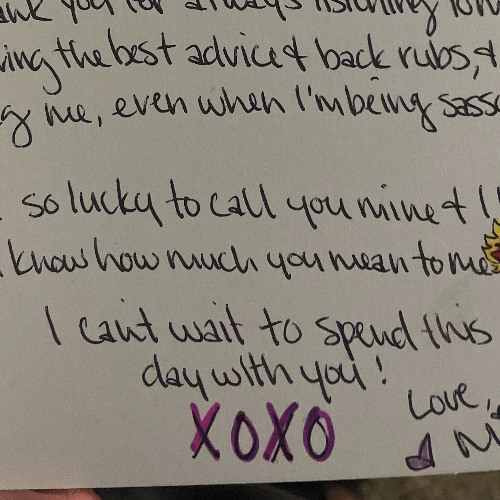 you for always listening
the best advice & back rubs, &
me, even when I'm being
so lucky to call you mine &
know how much you mean to me
I can't wait to spend this
day with you!
XOXO
Love,